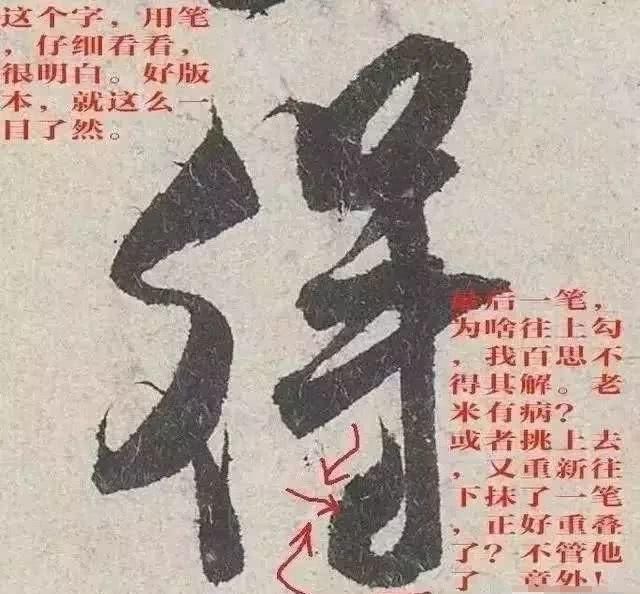 这个字，用笔
，仔细看看，
很明白。好版
本，就这么一
目了然。
得
最后一笔，
为啥往上勾
，我百思不
得其解。老
米有病？
或者挑上去
，又重新往
下抹了一笔
，正好重叠
了？不管他
了，意外！